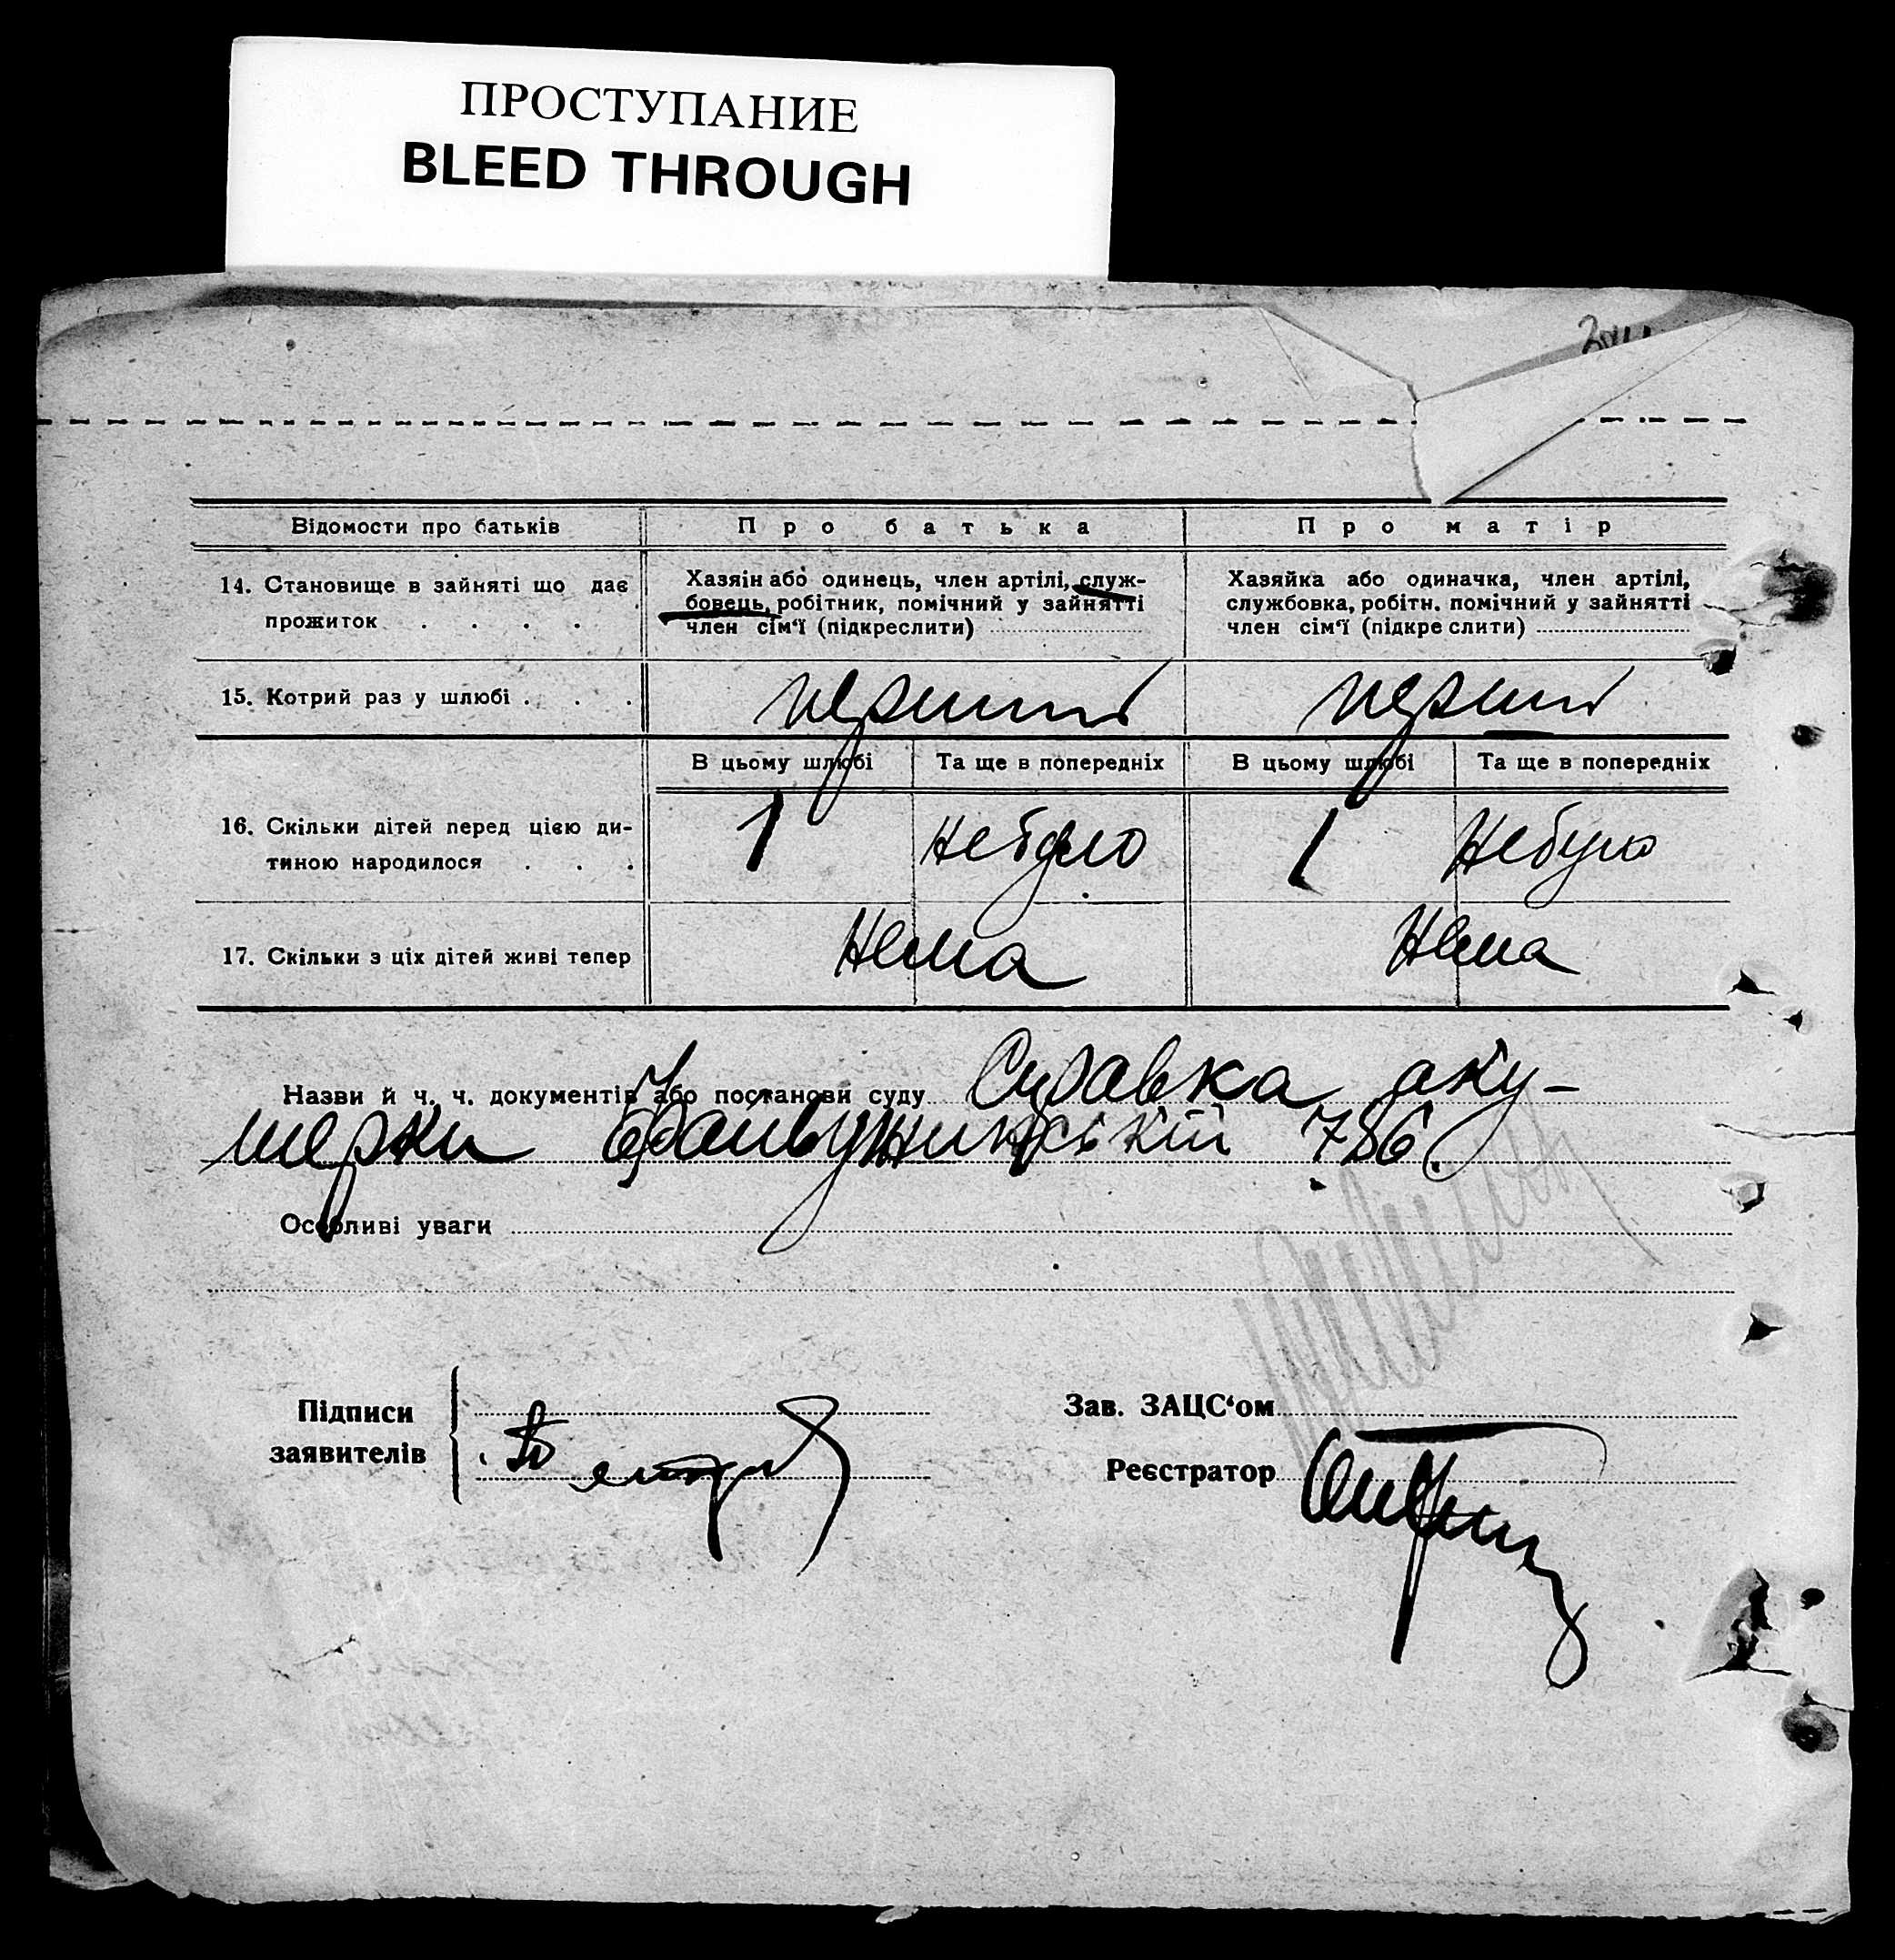 ПРОСТУПАНИЕ
BLEED THROUGH
Відомости про батьків
Про батька
Про матір
14. Становище в зайняті що дає
прожиток . . . .
Хазяїн або одинець, член артілі, служ-
бовець, робітник, помічний у зайнятті
член сім'ї (підкреслити)
Хазяйка або одиначка, член артілі,
службовка, робітн. помічний у зайнятті
член сім'ї (підкреслити)
15. Котрий раз у шлюбі . . .
перший
перший
В цьому шлюбі
Та ще в попередніх
В цьому шлюбі
Та ще в попередніх
16. Скільки дітей перед цією ди-
тиною народилося . . .
1
Небуло
1
Небуло
17. Скільки з ціх дітей живі тепер
Нема
Нема
Назви й ч. ч. документів або постанови суду Справка аку-
шерки 786.
Особливі уваги
Підписи
заявителів
Зав. ЗАЦС'ом
Реєстратор